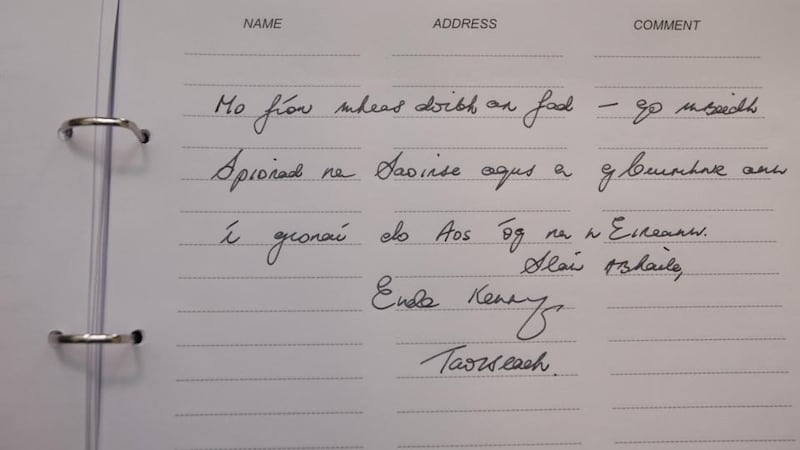 NAME ADDRESS COMMENT
Mo fíor mheas daoibh an fad – go mbeidh
Spiorad na Saoirse agus a gcuimhne ann
í gcroí do Aos óg na hEireann.
Slán Abhaile,
Enda Kenny
Taoiseach.